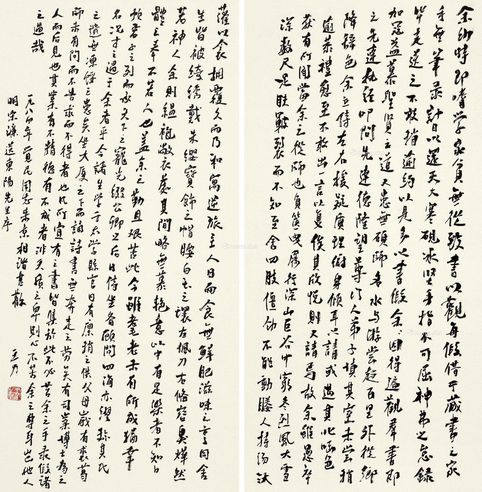 余幼時即嗜學家貧無從致書以觀每假借于藏書之家
手自筆录計日以還天大寒硯冰堅手指不可屈伸弗之怠録
畢走送之不敢稍逾約以是多以書假余因得遍觀羣書既
加冠益慕聖賢之道又患無碩師名人與游嘗趨百里外從鄉
之先達執經叩問先達德隆望尊門人弟子填其室未嘗稍
降辭色余立侍左右援疑質理俯身傾耳以請或遇其叱咄色
愈恭禮愈至不敢出一言以復俟其欣悅則又請焉故余雖愚卒
获有所聞當余之從師也負篋曳屣行深山巨谷中窮冬烈風大雪
深數尺足膚皸裂而不知至舍四肢僵勁不能動媵人持湯沃
灌以衾擁覆久而乃和寓逆旅主人日再食無鮮肥滋味之享同舍
生皆被綺繡戴朱纓寶飾之帽腰白玉之環左佩刀右備容臭燁然
若神人余則緼袍敝衣處其間略無慕艷意以中有足樂者不知口
體之奉不若人也蓋余之勤且艱若此今雖耄老未有所成猶幸
預君子之列而承天子之寵光綴公卿之后日侍坐備顧問四海亦謬稱其氏
名况才之過于余者乎今諸生學于太學縣官日有廩稍之供父母歲有裘葛
之遺無凍餒之患矣坐大廈之下而誦詩書無奔走之勞矣有司業博士為之
師未有問而不告求而不得者也凡所宜有之書皆集於此不必若余之手录假諸
人而后見也其業有不精德有不成者非天質之卑則心不若余之專耳豈他人
之過哉
一九八 年 民同志
明宋濂送東陽 生序
王力